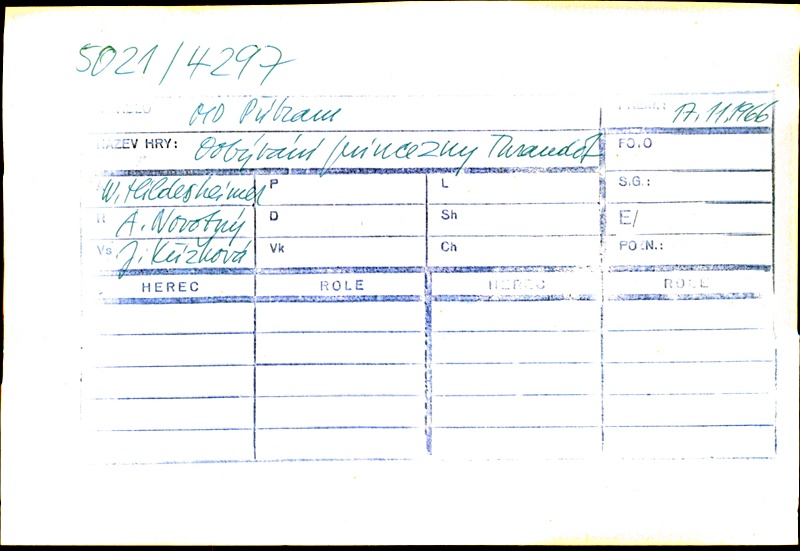 5021/4297
MD Příbram PREM.: 17.11.1966
NÁZEV HRY: Dobývání princezny Thurandot FOTO
W. Hildesheimer P L S.G.:
R A. Novotný D Sh E/
Vs J. Křížková Vk Ch POZN.:
HEREC ROLE HEREC ROLE